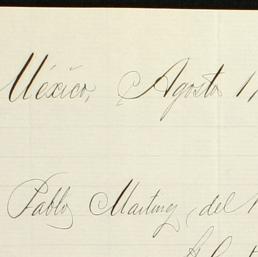 México, Agosto 1
Pablo Martinez del